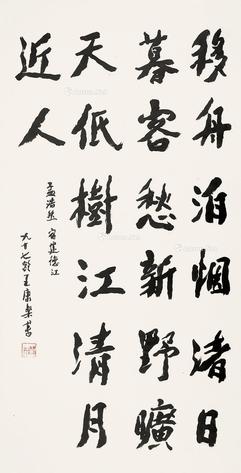 移舟泊烟渚日
暮客愁新野曠
天低樹江清月
近人
孟浩然 宿建德江
九十七龄王康樂書